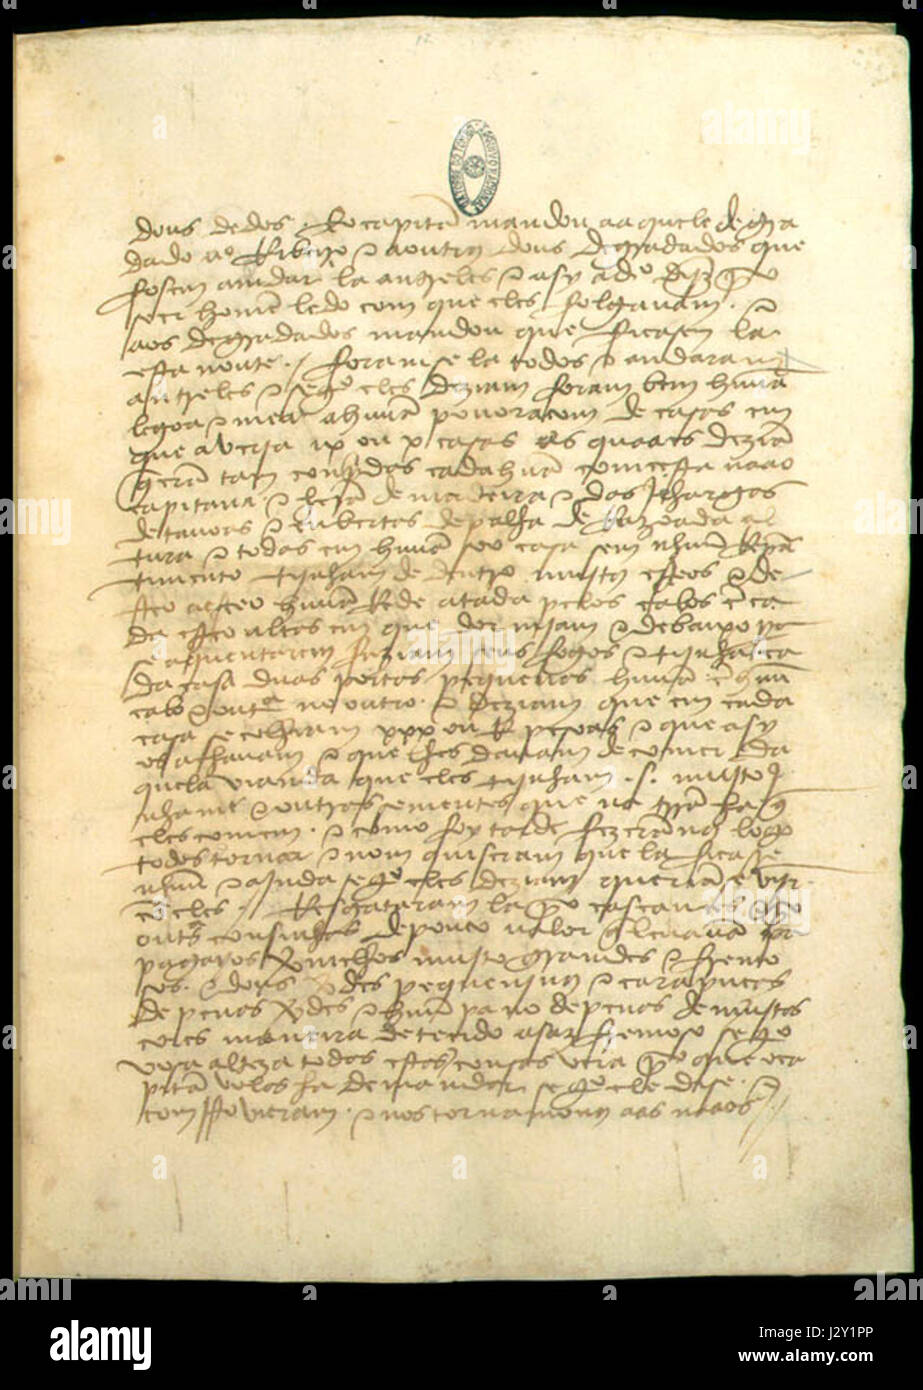 dous dedos. E o capitã mandou aaquele degra
dado ao Ribro e a outros dous degradados que
fosem amdar la antreles e asy a do dijz por
seer homẽ ledo com que eles folgavam. e
aos degradados mandou que ficasem la
esta noute. / foramse la todos e andaram
antreles e sego eles deziam foram bem huũa
legoa e mea a huũa povoraçom de casas em
que averja ix ou x casas as quaaes deziã
q erã tam conpridas cada huũa comeesta naao
capitana. e herã de madeira e das jlhargas
de tavoas e cubertas de palha de razoada al
tura e todas em huũa soo casa sem nhuũ repar
timento tijnham de dentro mujtos esteos e de
steo a esteo huũa rede atada pelos cabos ẽ ca
da esteo altas em que dormjam e debaixo pa
se aquentarem faziam seus fogos e tijnha ca
da casa duas portas pequenas huũa ẽ huũ
cabo e outa no outro. e deziam que em cada
casa se colhiam xxx ou R pesoas e que asy
os achavam e que lhes davam de comer da
quela vianda que eles tijnham .s. mujto j
nhame e outras sementes que na trra ha q
eles comem. e como foy tarde fezerãnos logo
todos tornar e nom quiseram que la ficase
nhuũ e ajnda sego eles deziam queriãse vijnr
cõ eles. / Resgataram la por cascavees e por
outas cousinhas de pouco valor q levavã pa
pagayos vermelhos mujto grandes e fremo
sos. e dous verdes pequenjnos e carapuças
de penas verdes e huũ pano de penas de mujtas
cores maneira de tecido asaz fremoso sego
vosa alteza todas estas cousas vera por que o ca
pitã volas ha de mandar sego ele dise. e
com isto vieram. e nos tornamonos aas naaos. /
alamy
Image ID: J2Y1PP
www.alamy.com